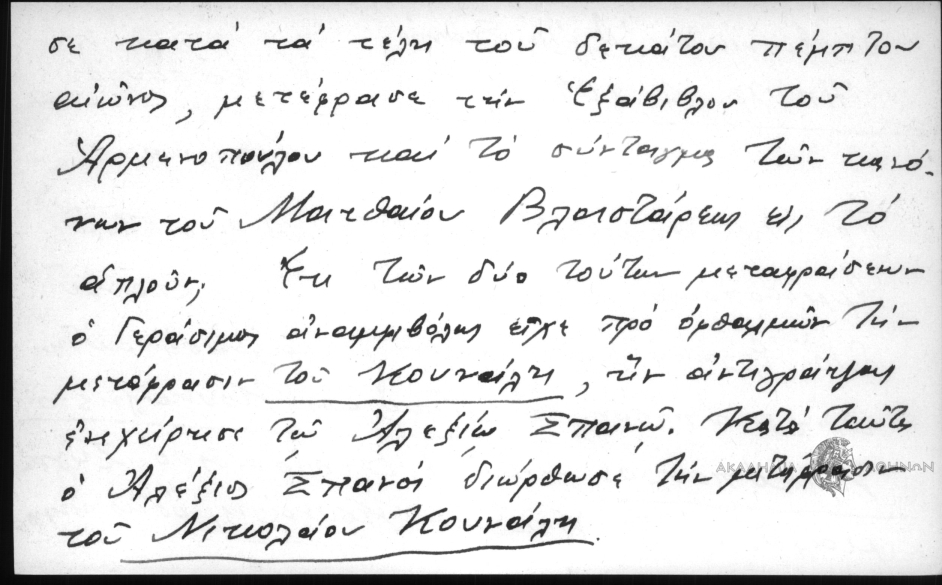 σε κατά τά τέλη τοῦ δεκάτου πέμπτου
αἰῶνος, μετέφρασε τήν Ἑξάβιβλον τοῦ
Ἁρμενοπούλου καί τό σύνταγμα τῶν κανό-
νων τοῦ Ματθαίου Βλαστάρεως εἰς τό
ἁπλοῦν. Ἐκ τῶν δύο τούτων μεταφράσεων
ὁ Γεράσιμος ἀναμφιβόλως εἶχε πρό ὀφθαλμῶν τήν
μετάφρασιν τοῦ Κουνάλη, ἥν ἀντιγράψας
ἐνεχείρησε τῷ Ἀλεξίῳ Σπανῷ. Κατά ταῦτα
ὁ Ἀλέξιος Σπανός διώρθωσε τήν μετάφρασιν
τοῦ Νικολάου Κουνάλη.
ΑΚΑΔΗΜΙΑ ΑΘΗΝΩΝ